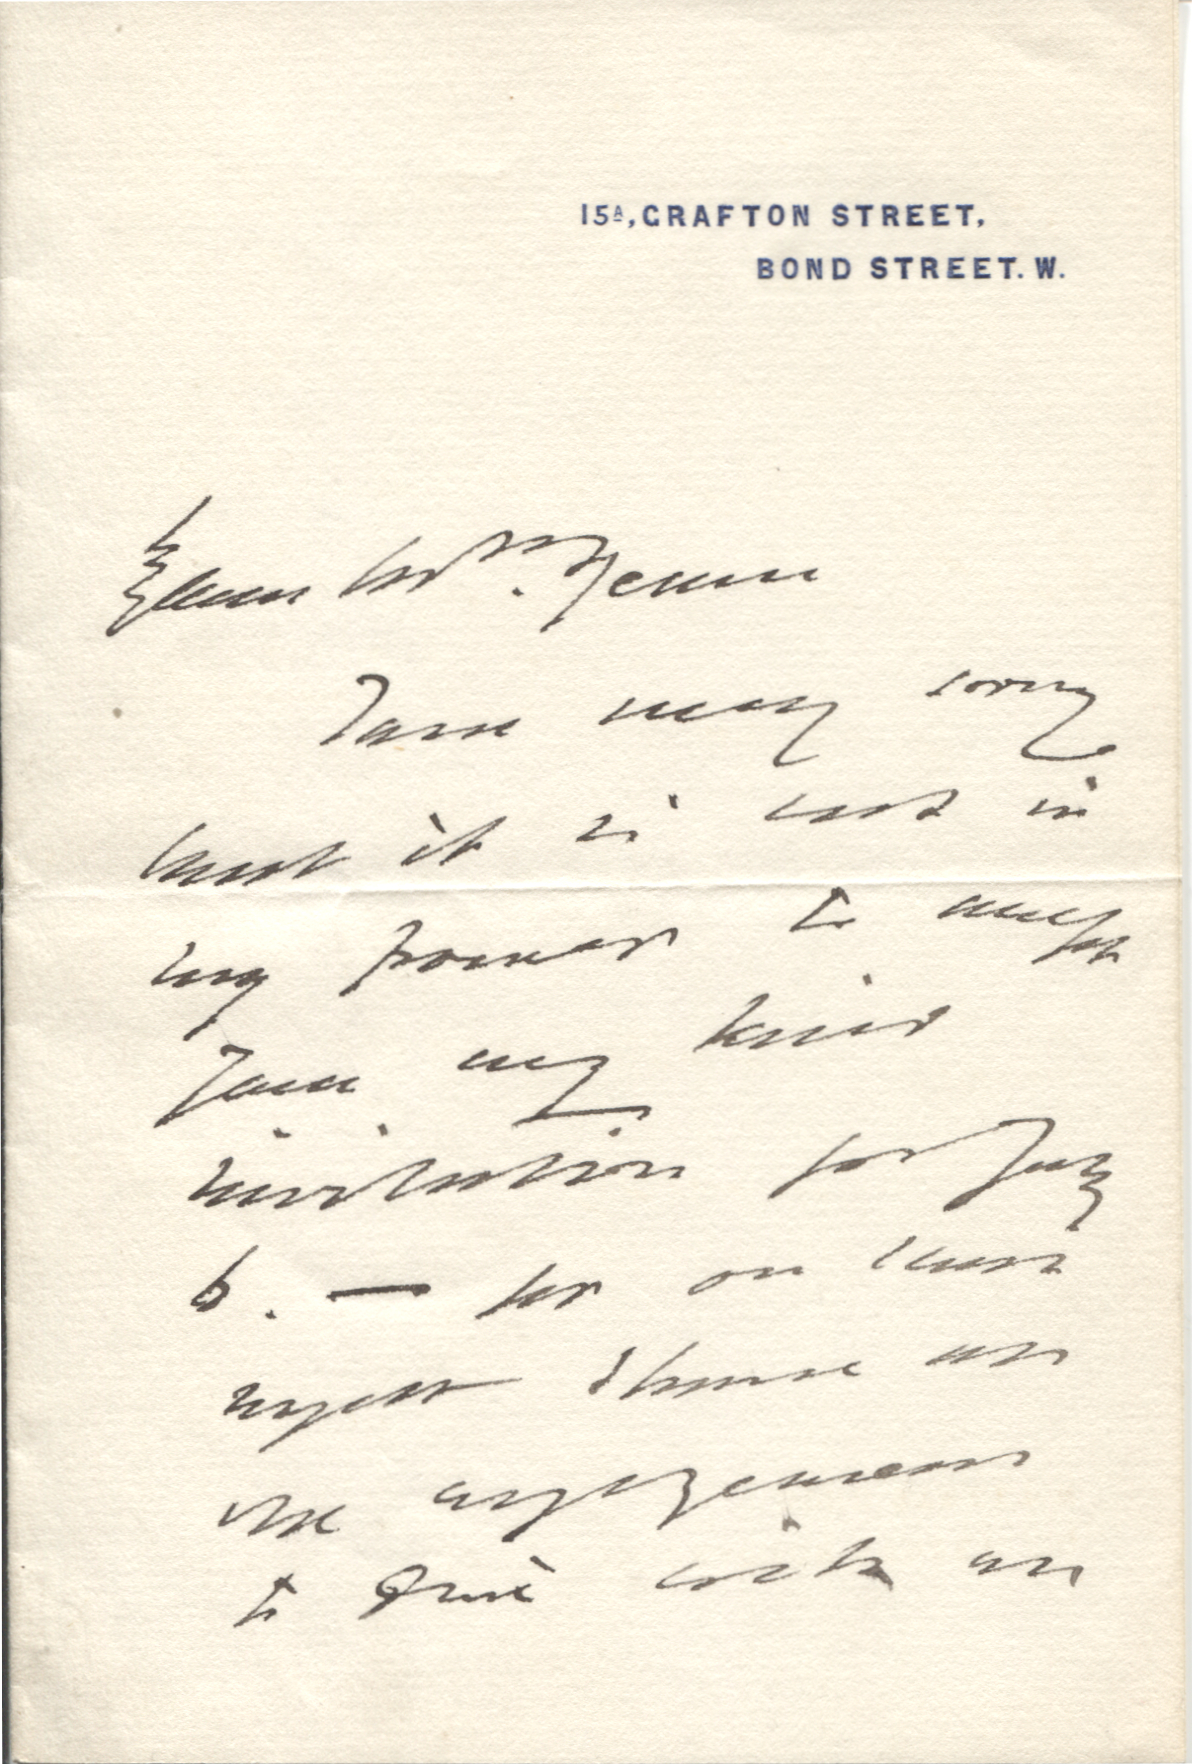 15A, GRAFTON STREET,
BOND STREET. W.
Dear Mrs.
I am very sorry
that it is not in
my power to accept
your very kind
invitation for July
6. — for on that
night I have an
engagement
to dine with an